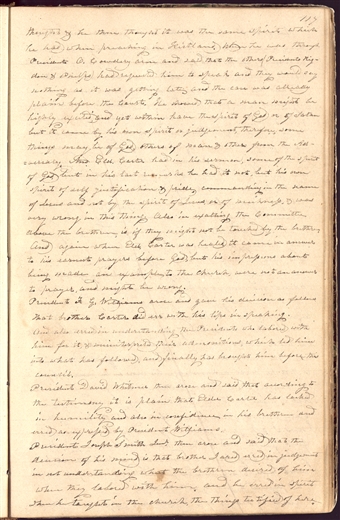 117
thoughts & he then thought it was the same spirit which
he had when preaching in Kirtland, When he was through
Presidents O. Cowdery arose and said that the other Presidents Rig-
don & Phelps had requested him to speak and they would say
nothing as it was getting late, and the case was already
plain before the Court, he showed that a man might be
highly excited and yet obtain have the spirit of God, or of Satan
but it came by his own spirit or judgement, therefore, some
things may be of God, others of man & others from the Ad-
versary. And Eldr Carter had in his sermon, some of the spirit
of God, but in his last remarks he had it not, but his own
spirit of self justification & pride, commanding in the name
of Jesus and not by the spirit of Jesus or of meekness, & was
very wrong in this thing, Also in exalting the Committee
above the brethren, as if they might not be touched by the brethren
And again when Eldr Carter was healed it came in answer
to his secret prayer before God, but his impressions about
being made an example to the Church, were not an answer
to prayer, and might be wrong.
President F. G. Williams arose and gave his decision as follows
that brother Carter did err with his lips in speaking
And also erred in understanding the Presidents who labored with
him for it, & misinterpreted their admonitions, which led him
into what has followed, and finally has brought him before this
council.
President David Whitmer then arose and said that according to
the testimony it is plain that Elder Carter has lacked
in humility and also in confidence in his brethren and
erred as expressed by President Williams.
President Joseph Smith Junr. then arose and said that the
decision of his mind is that brother Jared erred in judgement
in not understanding what the brethren desired of him
when they labored with him, and he erred in spirit
when he taught in the church the things testified of here,